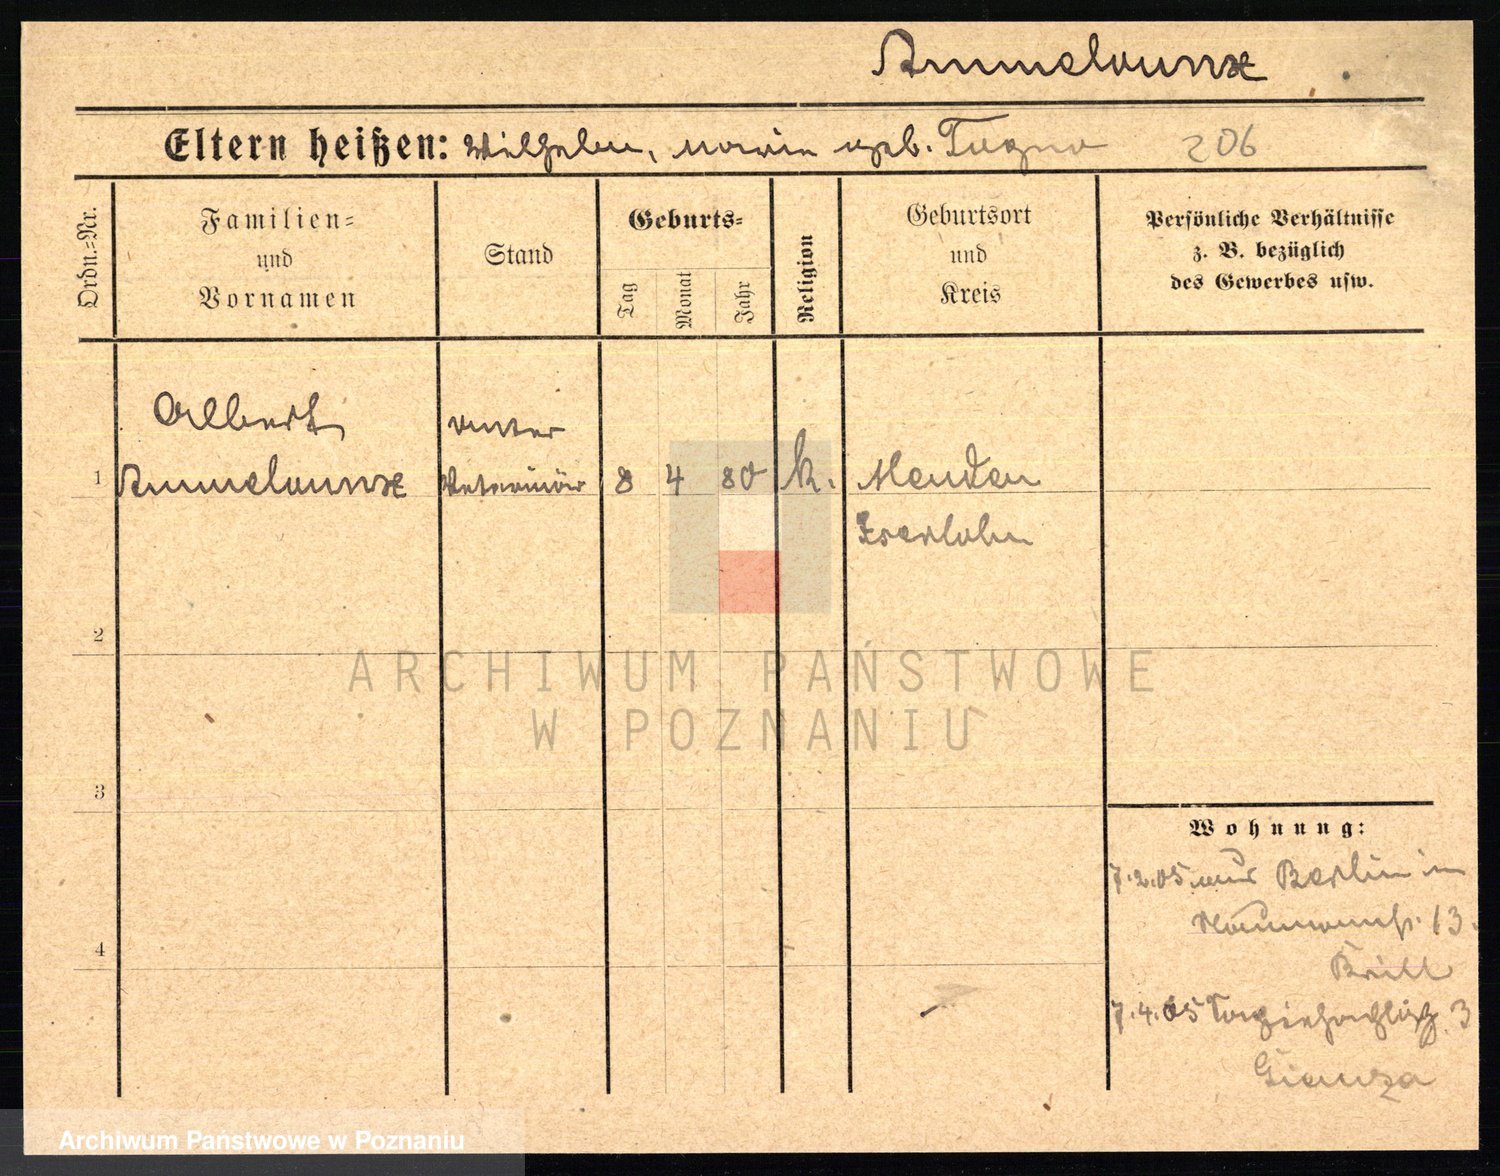 Ammelounxe
Eltern heißen: Wilhelm, Maria geb. Tugno 206
Ordn.=Nr.
Familien=
und
Vornamen
Stand
Geburts=
Tag
Monat
Jahr
Religion
Geburtsort
und
Kreis
Persönliche Verhältnisse
z. B. bezüglich
des Gewerbes usw.
Albert
unter
1 Ammelounxe Veterinär 8 4 80 k. Menden
Iserlohn
2
3
4
ARCHIWUM PAŃSTWOWE
W POZNANIU
Wohnung:
7.2.05 aus Berlin in
13.
Brill
7.4.05 3
Archiwum Państwowe w Poznaniu